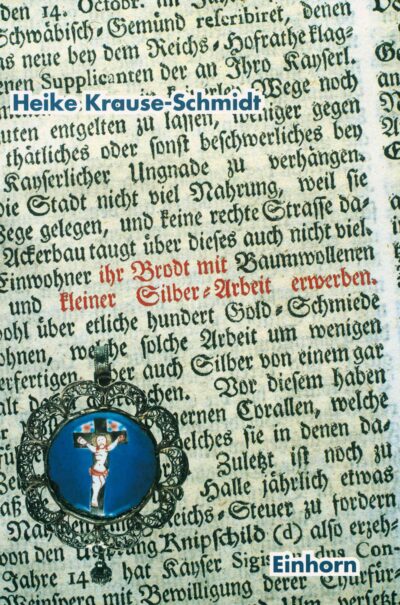 den 14. Octobr. im
Schwäbisch-Gemünd rescribiret, denen
as neue bey dem Reichs-Hofrathe klag-
enen Supplicanten der an Ihro Kayserl.
Wege noch
Heike Krause-Schmidt
uten entgelten zu lassen, weniger gegen
thätliches oder sonst beschwerliches bey
Kayserlicher Ungnade zu verhängen.
die Stadt nicht viel Nahrung, weil sie
Wege gelegen, und keine rechte Strasse da-
Ackerbau taugt über dieses auch nicht viel.
Einwohner ihr Brodt mit Baumwollenen
und kleiner Silber-Arbeit erwerben.
wohl über etliche hundert Gold-Schmiede
ohnen, welche solche Arbeit um wenigen
erfertigen, aber auch Silber von einem gar
alt Vor diesem haben
ernen Corallen, welche
für welches sie in denen da-
Zuletzt ist noch zu
Halle jährlich etwas
Reichs-Steuer zu fordern
von den Knipschild (d) also erzeh-
Jahre 14 hat Kayser Con-
Weinsperg mit Bewilligung derer Churfür-
Ulm versetzt
Einhorn